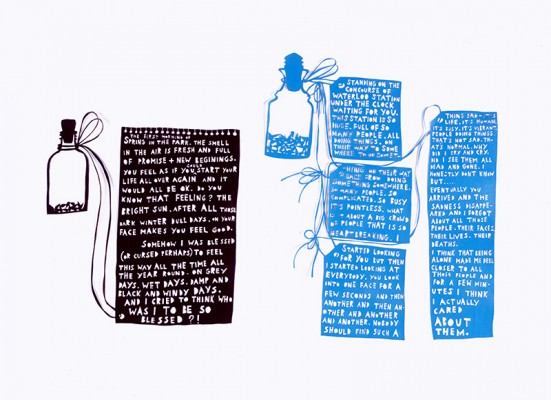 THE FIRST MORNING OF
SPRING IN THE PARK. THE SMELL
IN THE AIR IS FRESH AND FULL
OF PROMISE + NEW BEGINNINGS.
YOU FEEL AS IF YOU COULD START YOUR
LIFE ALL OVER AGAIN AND IT
WOULD ALL BE OK. DO YOU
KNOW THAT FEELING? THE
BRIGHT SUN, AFTER ALL THOSE
DARK WINTER DULL DAYS, ON YOUR
FACE MAKES YOU FEEL GOOD.
SOMEHOW I WAS BLESSED
(OR CURSED PERHAPS) TO FEEL
THIS WAY ALL THE TIME ALL
THE YEAR ROUND. ON GREY
DAYS. WET DAYS. DAMP AND
BLACK AND WINDY DAYS.
AND I CRIED TO THINK WHO
WAS I TO BE SO
BLESSED ?!
STANDING ON THE
CONCOURSE OF
WATERLOO STATION
UNDER THE CLOCK
WAITING FOR YOU.
THIS STATION IS SO
HUGE. FULL OF SO
MANY PEOPLE. ALL
DOING THINGS. ON
THEIR WAY TO SOME
WHERE
THING ON THEIR WAY
FROM DOING
SOMETHING SOMEWHERE.
SO MANY PEOPLE. SO
COMPLICATED. SO BUSY
IT'S POINTLESS. WHAT
IS ABOUT A BIG CROWD
OF PEOPLE THAT IS SO
HEARTBREAKING. I
STARTED LOOKING
FOR YOU BUT THEN
I STARTED LOOKING AT
EVERYBODY. YOU LOOK
INTO ONE FACE FOR A
FEW SECONDS AND THEN
ANOTHER AND THEN AN-
OTHER AND ANOTHER
AND ANOTHER. NOBODY
SHOULD FIND SUCH A
THING SAD. IT'S
LIFE. IT'S HUMAN.
IT'S BUSY. IT'S VIBRANT.
PEOPLE DOING THINGS.
THAT'S NOT SAD. THAT'S
NORMAL. WHY
DID I TRY AND CRY.
DID I SEE THEM ALL
DEAD AND GONE. I
HONESTLY DON'T KNOW
BUT....
EVENTUALLY YOU
ARRIVED AND THE
SADNESS DISAPPE-
ARED AND I FORGOT
ABOUT ALL THOSE
PEOPLE. THEIR FACES.
THEIR LIVES. THEIR
DEATHS.
I THINK THAT BEING
ALONE MADE ME FEEL
CLOSER TO ALL
THOSE PEOPLE AND
FOR A FEW MIN-
UTES I THINK
I ACTUALLY
CARED
ABOUT
THEM.